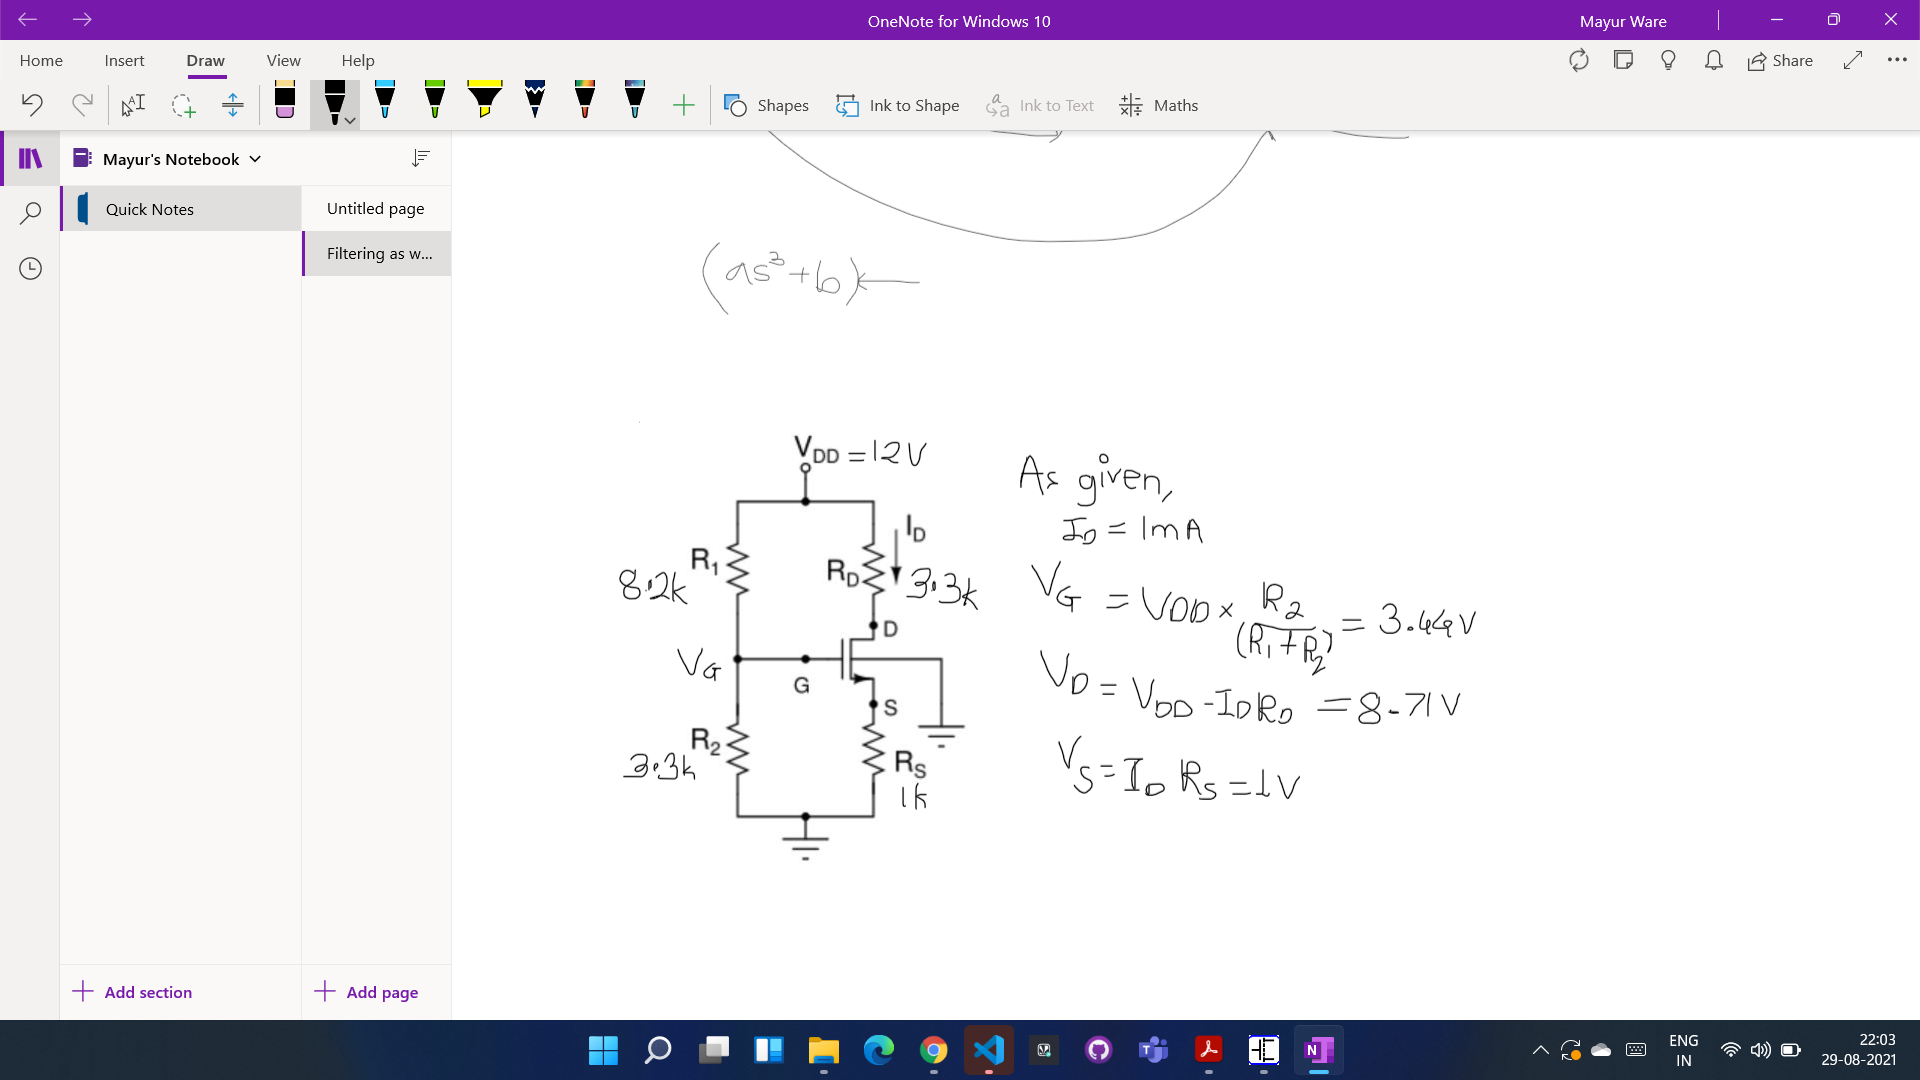 OneNote for Windows 10
Mayur Ware
Home Insert Draw View Help
Share
Shapes Ink to Shape Ink to Text Maths
Mayur's Notebook
Quick Notes
Untitled page
Filtering as w...
(as³+b)
VDD = 12V
As given,
ID
ID = 1mA
R1
8.2k
RD
3.3k
VG = VDD × R2/(R1+R2) = 3.44V
D
VG
G
VD = VDD - IDRD = 8.71V
S
R2
3.3k
RS
1k
VS = ID RS = 1V
Add section
Add page
ENG
IN
22:03
29-08-2021